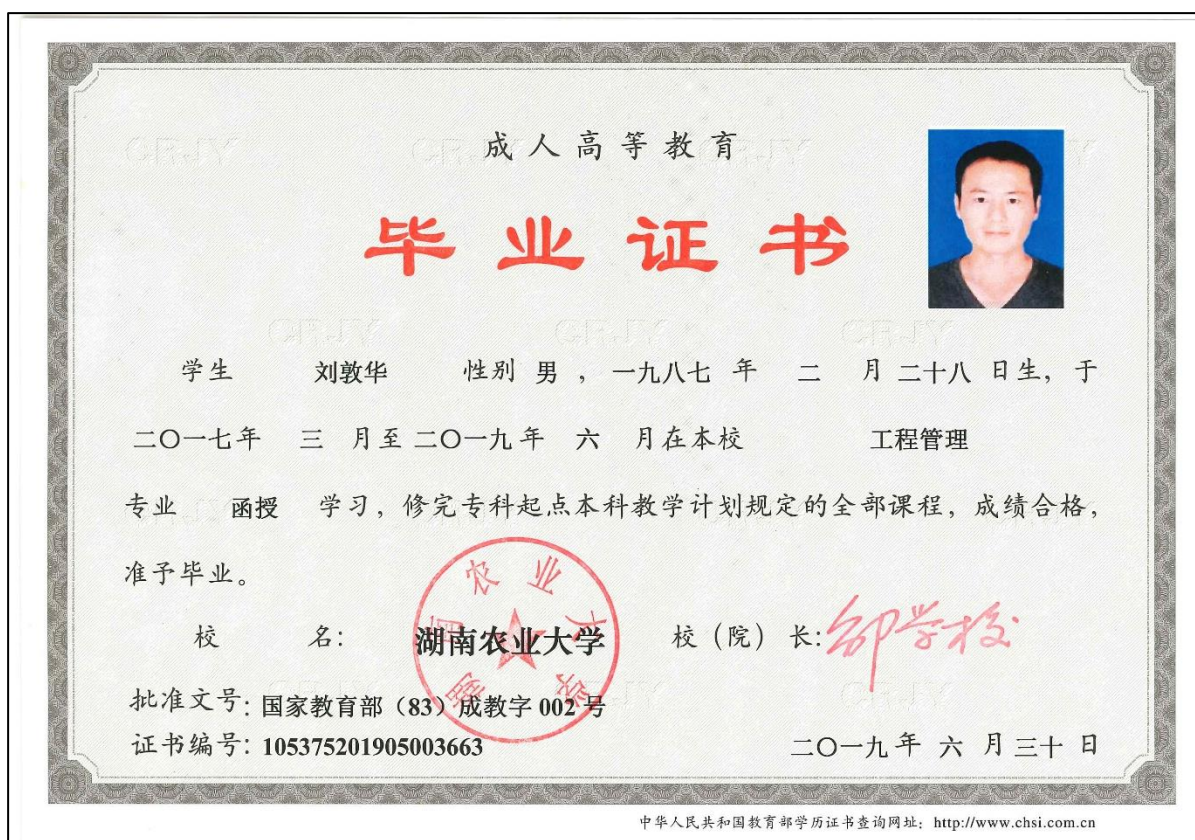 成人高等教育
毕业证书
学生 刘敦华 性别 男 ，一九八七 年 二 月 二十八 日生，于
二〇一七年 三 月至 二〇一九年 六 月在本校 工程管理
专业 函授 学习，修完专科起点本科教学计划规定的全部课程，成绩合格，
准予毕业。
校 名： 湖南农业大学 校（院）长：邹学校
湖南农业大学
批准文号：国家教育部（83）成教字 002 号
证书编号：105375201905003663 二〇一九年 六 月三十 日
中华人民共和国教育部学历证书查询网址：http://www.chsi.com.cn
CRJY
CRJY
CRJY
CRJY
CRJY
CRJY